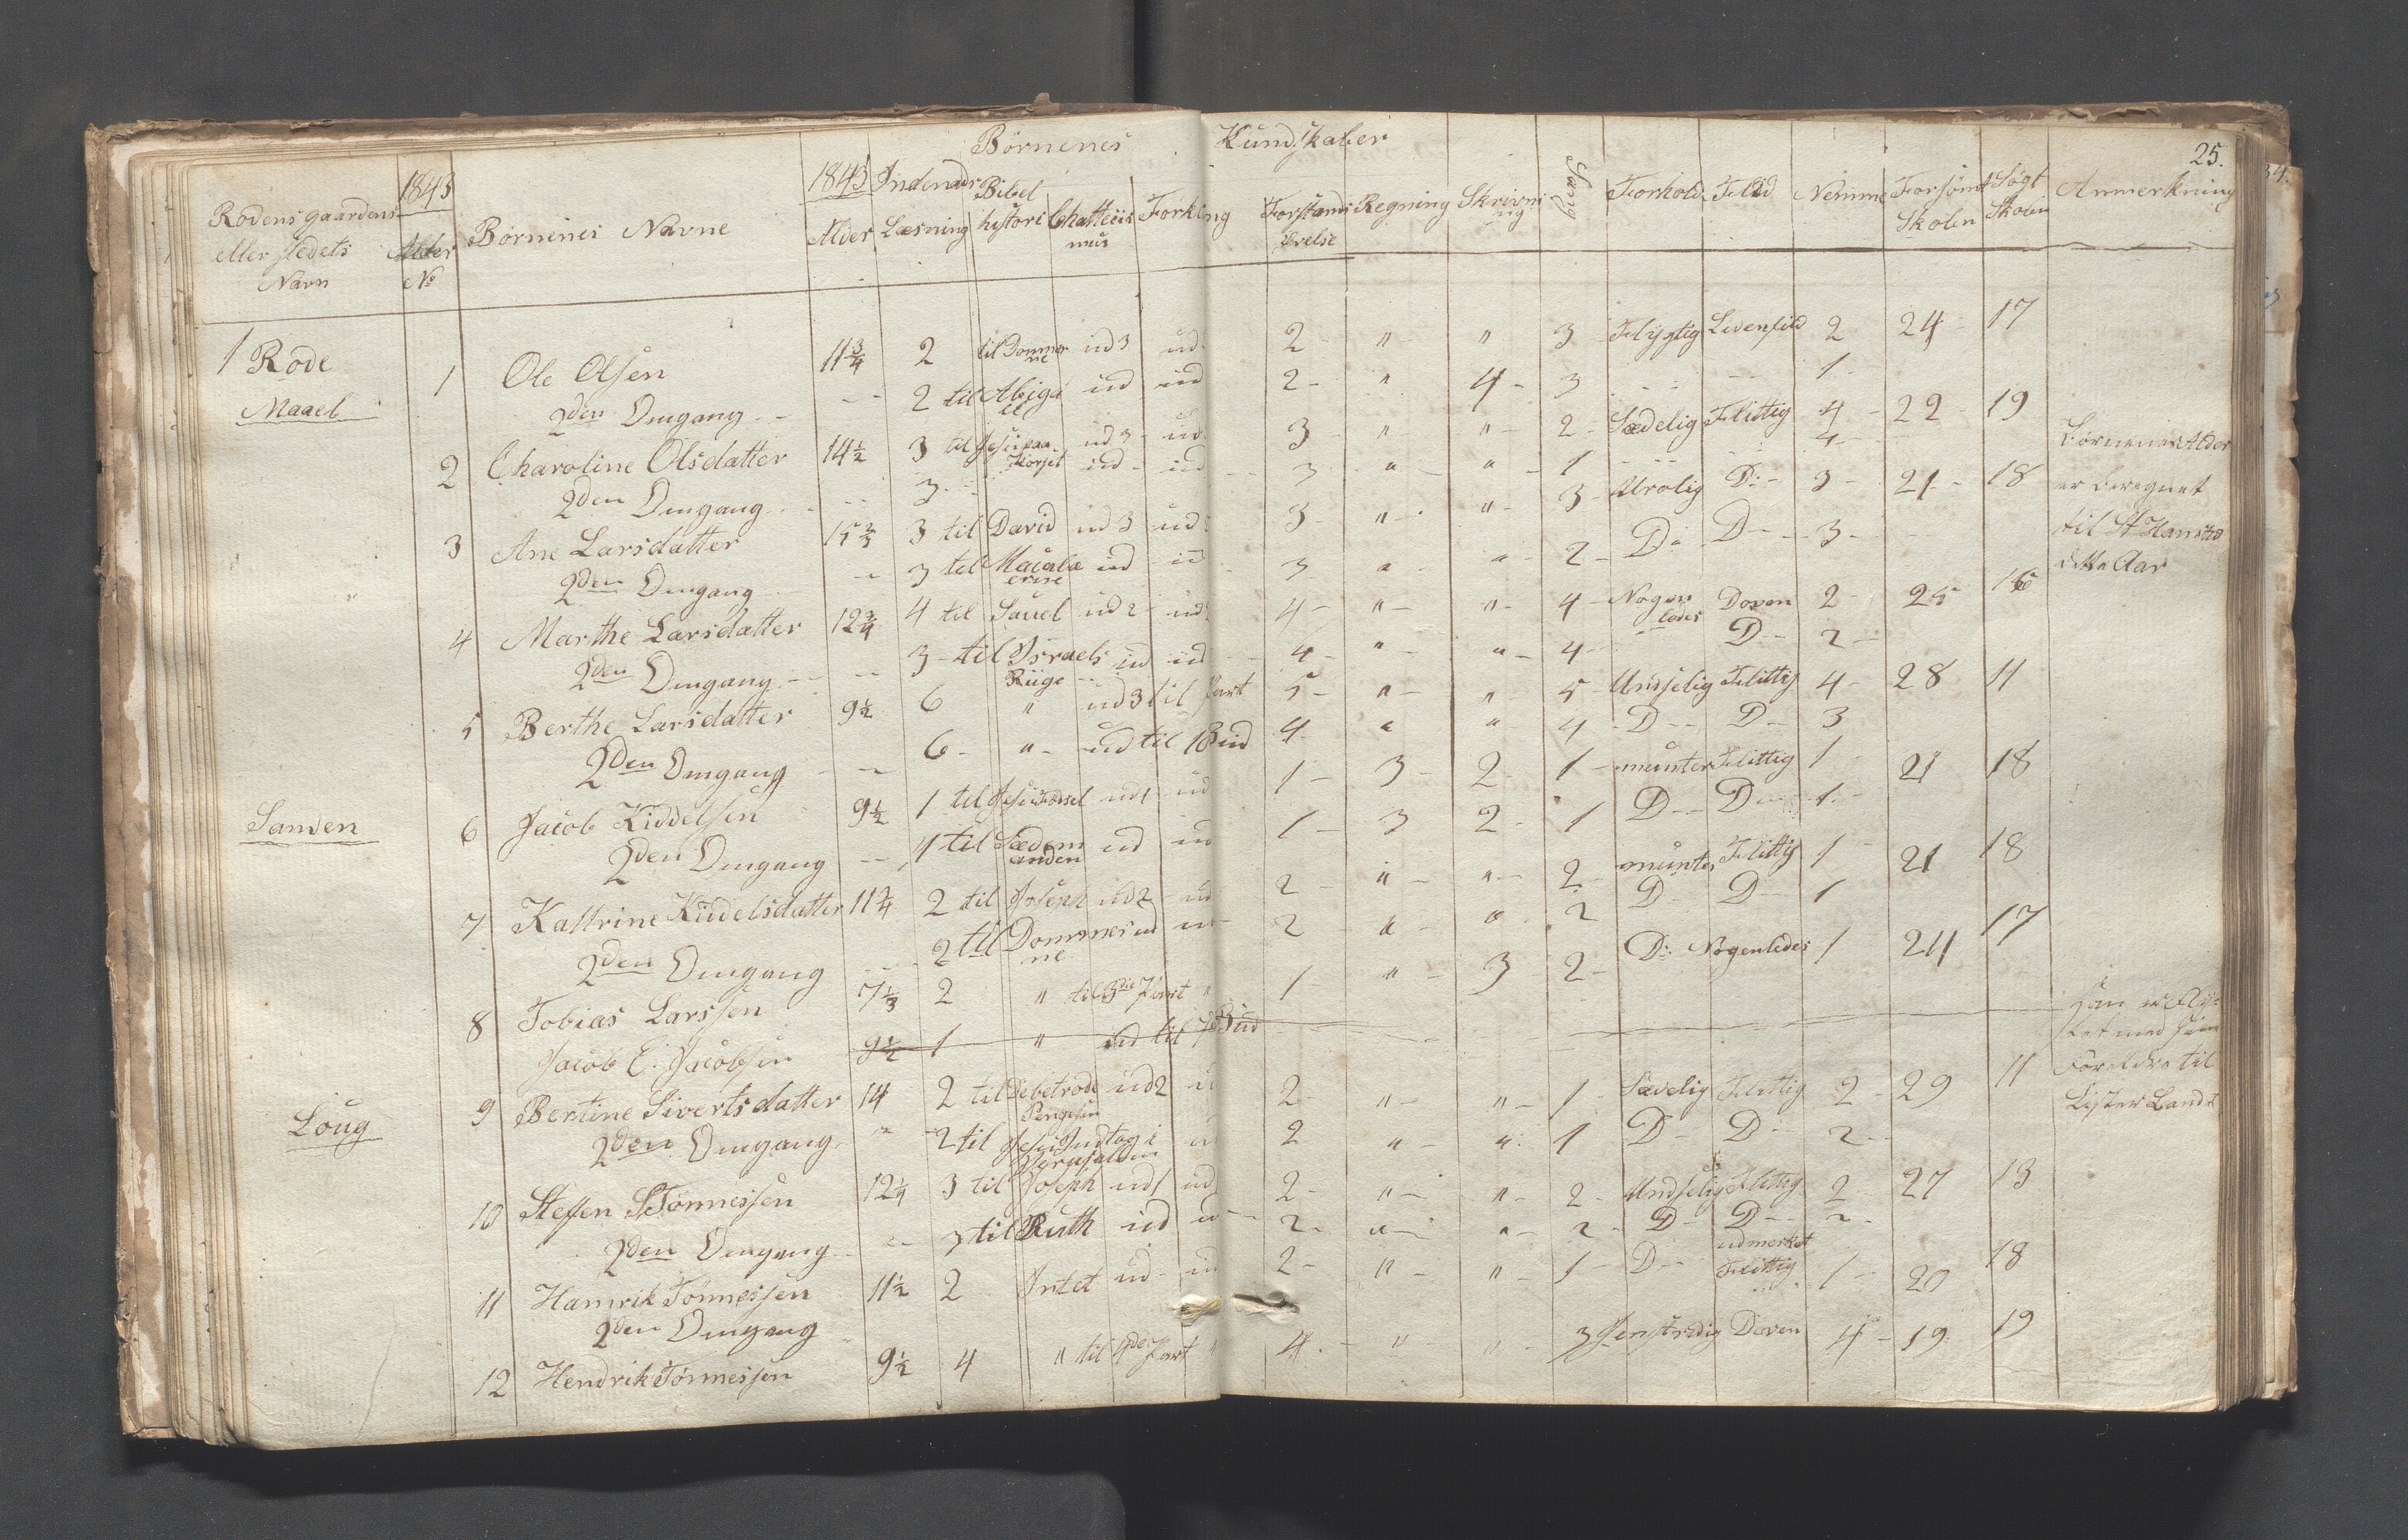 Börnenes Kundskaber
25.
1843 1843 Indenads Bibel Sang Forhold Flid Nemme Forsömt Sögt Anmerkning
Rodens gaardens Börnenes Navne Alder Læsning histori Chatteciis Forkl Forstands Regning Skrivni Skolen Skolen
eller stedets mus övelse ng
Navn No
1 Rode 1 Ole Olsen 11 3/4 2 til Dommer ud 3 ud 2 - " " 3 Flygtig 2 24 17
ne
Maael 2den Omgang - - 2 til Abiga ud ud 2 - " 4 - 3 1 -
il
2 Charoline Olsdatter 14 1/2 3 til Jesu paa ud 3 ud 3 - " " - 2 - Sædelig Flittig 4 - 22 19
Korset
2den Omgang - - 3 - ud - ud 3 " - " - 1 4 - Börnenes Alder
3 Ane Larsdatter 3 til David ud 3 ud 3 - " - " - 3 - Urolig D: - 3 - 21 - 18 er beregnet
2den Omgang - 3 til Macabæ ud ud 3 " - " - 2 - D: D - - 3 - til St Hans
erne
dette Aar
4 Marthe Larsdatter 12 3/4 4 til Sauel ud 2 - ud 4 - " - " - 4 - Nogen Doven 2 - 25 16
ledes
2den Omgang - - - 3 - til Israels ud ud 4 - " - " - 4 - D - - 2 -
Rüge
5 Berthe Larsdatter 9 1/2 6 " ud 3 til Part 5 - " - " 5 - Undselig Flittig 4 - 28 11
2den Omgang - - 6 - " - ud til 18 Bud 4 " " 4 - D - - D - 3
Sanden 6 Jacob Kiddelsen 9 1/2 1 til Jesu Födsel ud 1 ud 1 - 3 - 2 - 1 - munter Flittig 1 - 21 18
2den Omgang - - 1 til Sædem ud ud 1 - 3 2 - 1 D - - D - - 1 -
anden
7 Kattrine Kiddelsdatter 11 3/4 2 til Joseph ud 2 ud 2 - " - " - 2 - munter Flittig 1 - 21 18
2den Omgang - - 2 til Dommer ud ud 2 " - " - 2 D - D - 1
ne
8 Tobias Larssen 7 1/3 2 " til 3die Part " 1 - " - 3 - 2 - D: Nogenledes 1 - 24 17
Jacob E. Jacobsen 9 1/2 1 " ud til 7de Bud
Han er flyt-
tet med sine
Foreldre til
Lister Land
Loug 9 Bertine Sivertsdatter 14 2 til Debetrode ud 2 u 2 - " - " - 1 - Sædelig Flittig 2 - 29 11
Pengesin
2den Omgang - - 2 til Jesu Indtog i u 2 " - " 1 D - D - 2 -
Jerusalem
10 Steffen STönnessen 12 1/4 3 til Joseph ud 1 ud 2 - " - " - 2 - Undselig Flittig 2 - 27 13
2den Omgang - - 3 til Ruth ud u 2 - " - " - 2 - D - D - - 2 -
11 Hanrik Tönnessen 11 1/2 2 Intet ud - ud 2 - " - " - 1 - D - - udmerket 1 - 20 18
Flittig
2den Omgang
12 Hendrik Tönnessen 9 1/2 4 " til 4de Part " 4 - " " 3 Genstridig Doven 4 - 19 19